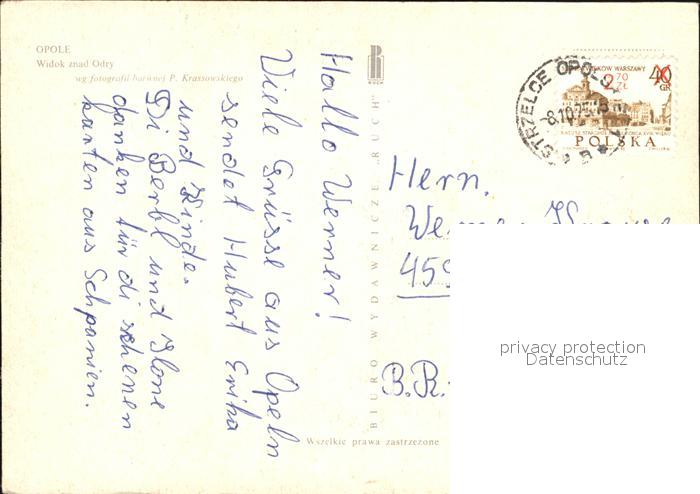 OPOLE
Widok znad Odry
wg fotografii barwnej P. Krassowskiego
Hallo Werner!
Viele Grüsse aus Opeln
sendet Hubert Erika
und Kinde.
Di Berbl und Ilone
danken für di schenen
karten aus Schpanien.
BIURO WYDAWNICZE „RUCH”
Wszelkie prawa zastrzeżone
STRZELCE OPOLS
-8.10.75
WARSZAWY
40
GR
2,70
ZŁ
POLSKA
Hern.
459
B.R.
privacy protection
Datenschutz